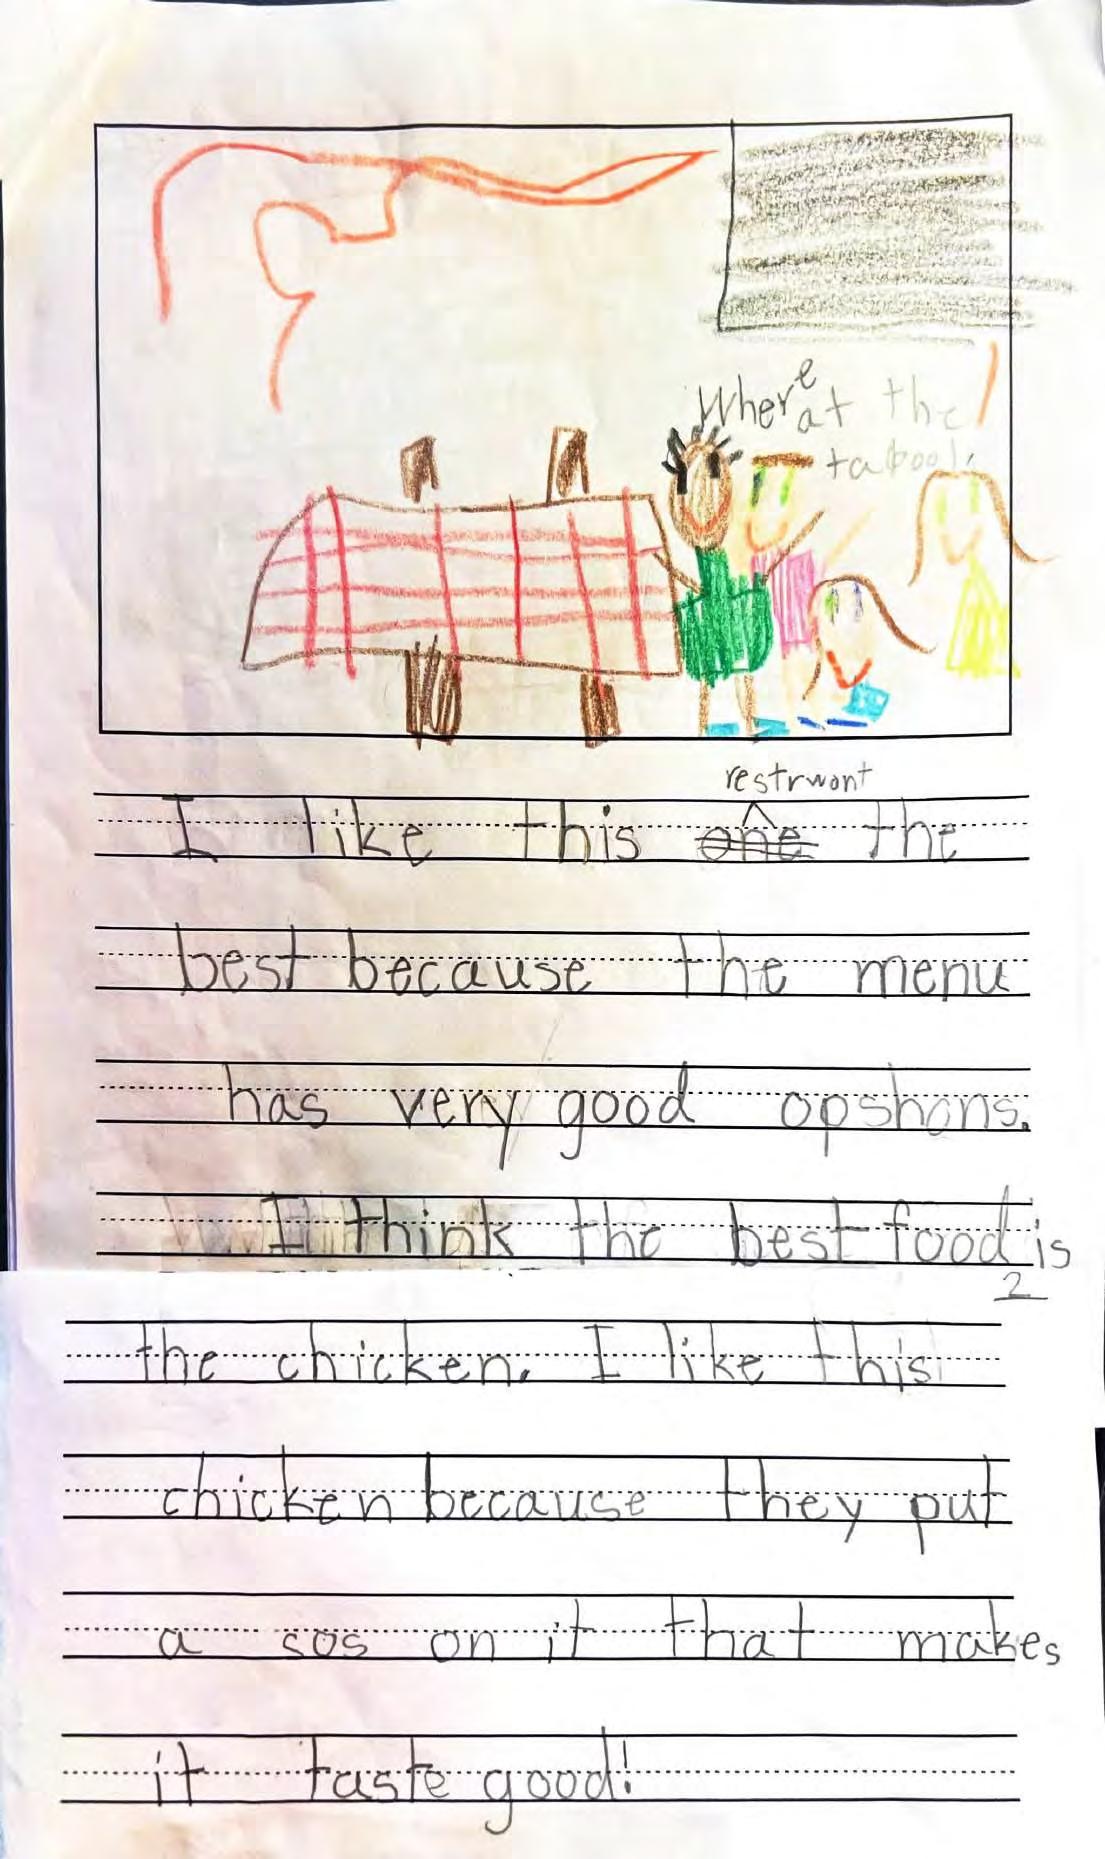 Where at the
tabool.
restrwont
I like this one the
best because the menu
has very good opshons.
I think the best food is
2
the chicken. I like this
chicken because they put
a sos on it that makes
it taste good!